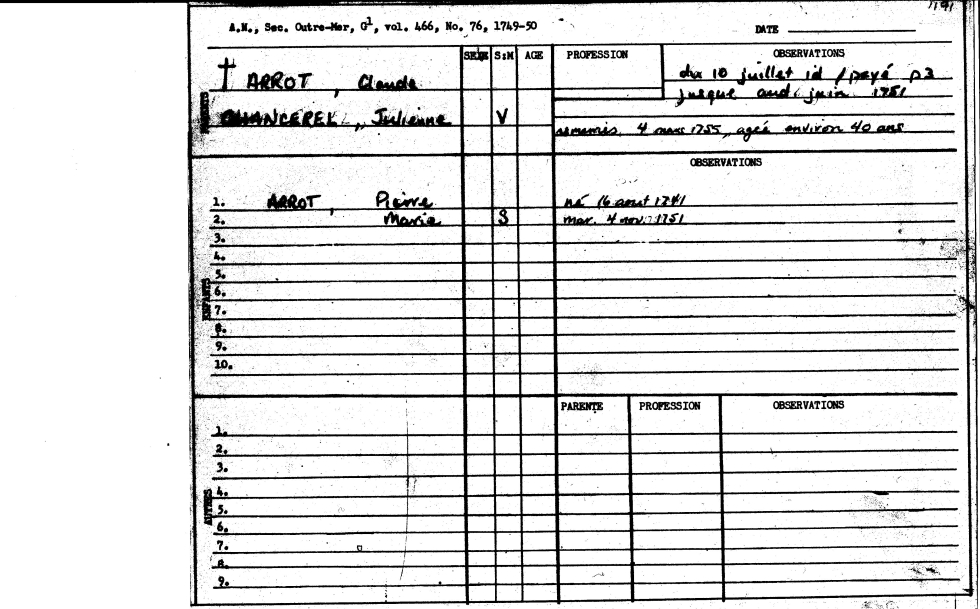 191
A.N., Sec. Outre-Mer, G1, vol. 466, No. 76, 1749-50 DATE
SEXE S:M AGE PROFESSION OBSERVATIONS
† ARROT, Claude du 10 juillet id / payé p3
jusque juin 1751
PARENTS
CHANCEREL, Julienne V
4 mars 1755, agée environ 40 ans
OBSERVATIONS
1. ARROT, Pierre né 16 aout 1741
2. Marie S mar. 4 nov. 1751
3.
4.
5.
ENFANTS
6.
7.
8.
9.
10.
PARENTE PROFESSION OBSERVATIONS
1.
2.
3.
AUTRES
4.
5.
6.
7.
8.
9.